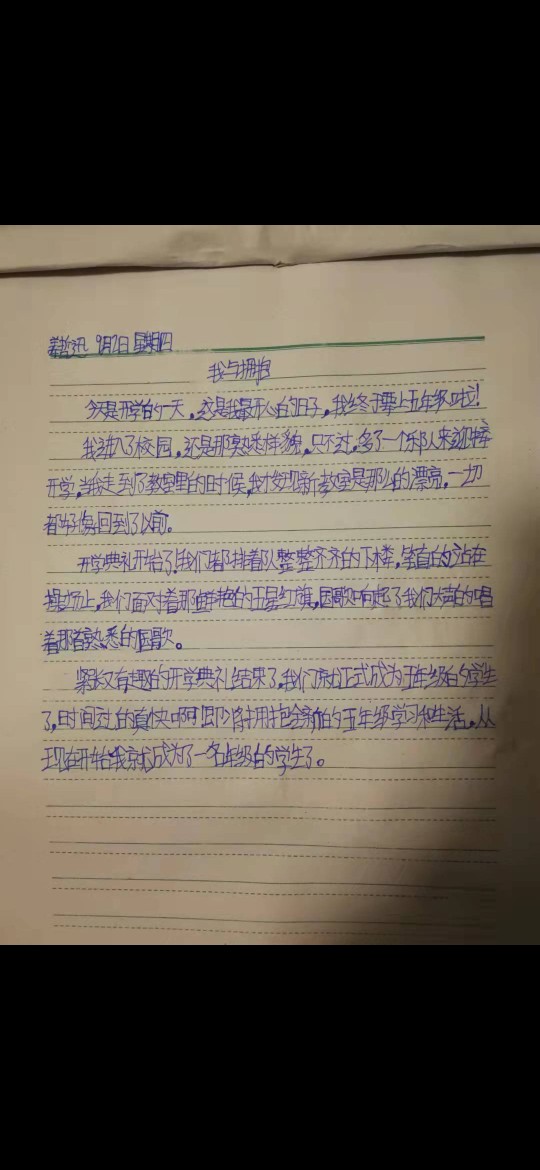 9月2日 星期四
我与拥抱
今天是开学的一天,这是我最开心的日子,我终于要上五年级啦!
我进入了校园,还是那熟悉样貌,只不过,多了一个乐队来迎接
开学,当我走到了教室里的时候,我才发现新教室是那么的漂亮,一切
都好像回到了以前。
开学典礼开始了!我们都排着队整整齐齐的下楼,笔直的站在
操场上,我们面对着那鲜艳的五星红旗,国歌响起了我们大声的唱
着那首熟悉的国歌。
紧张又有趣的开学典礼结束了,我们正式成为五年级的学生
了,时间过的真快啊 拥抱全新的五年级学习和生活。从
现在开始我就成为了一名年级的学生了。